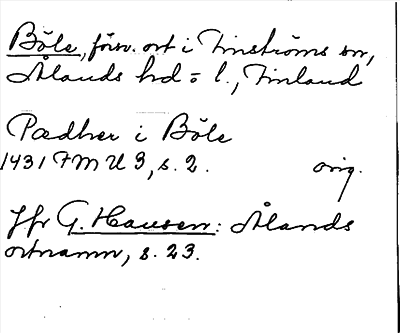 Böle, försv. ort i Finströms sn,
Ålands hd = l., Finland
Pædher i Böle
1431 FMU 3, s. 2. orig.
Jfr G. Hausen: Ålands
ortnamn, s. 23.